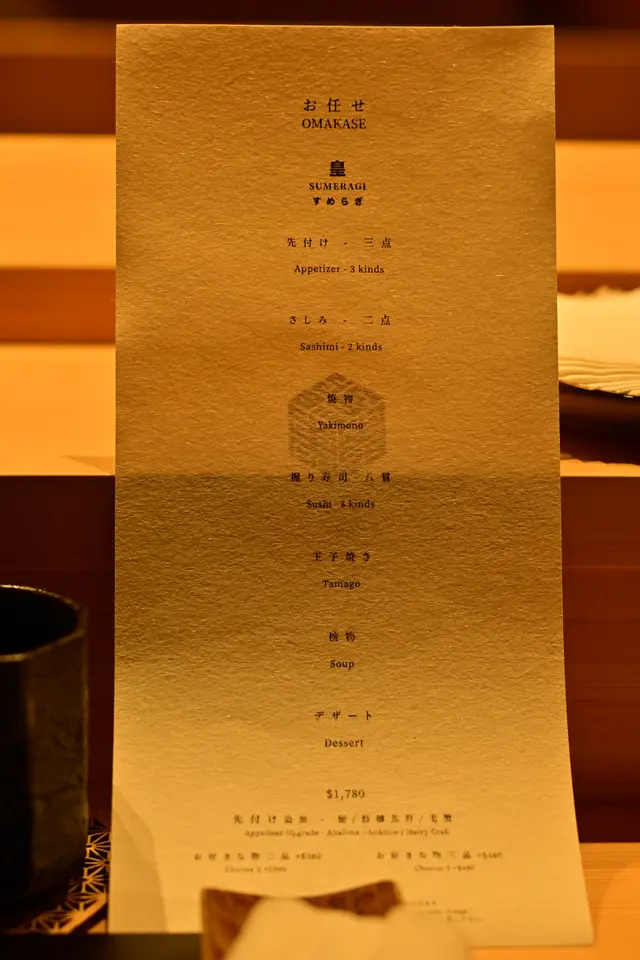 お任せ
OMAKASE
皇
SUMERAGI
すめらぎ
先付け - 三点
Appetizer - 3 kinds
さしみ - 二点
Sashimi - 2 kinds
焼物
Yakimono
握り寿司 - 八貫
Sushi - 8 kinds
玉子焼き
Tamago
椀物
Soup
デザート
Dessert
$1,780
先付け追加 -
Appetizer Upgrade - Abalone / Ankimo / Hairy Crab
お好きな物二品 +$380
お好きな物三品 +$480